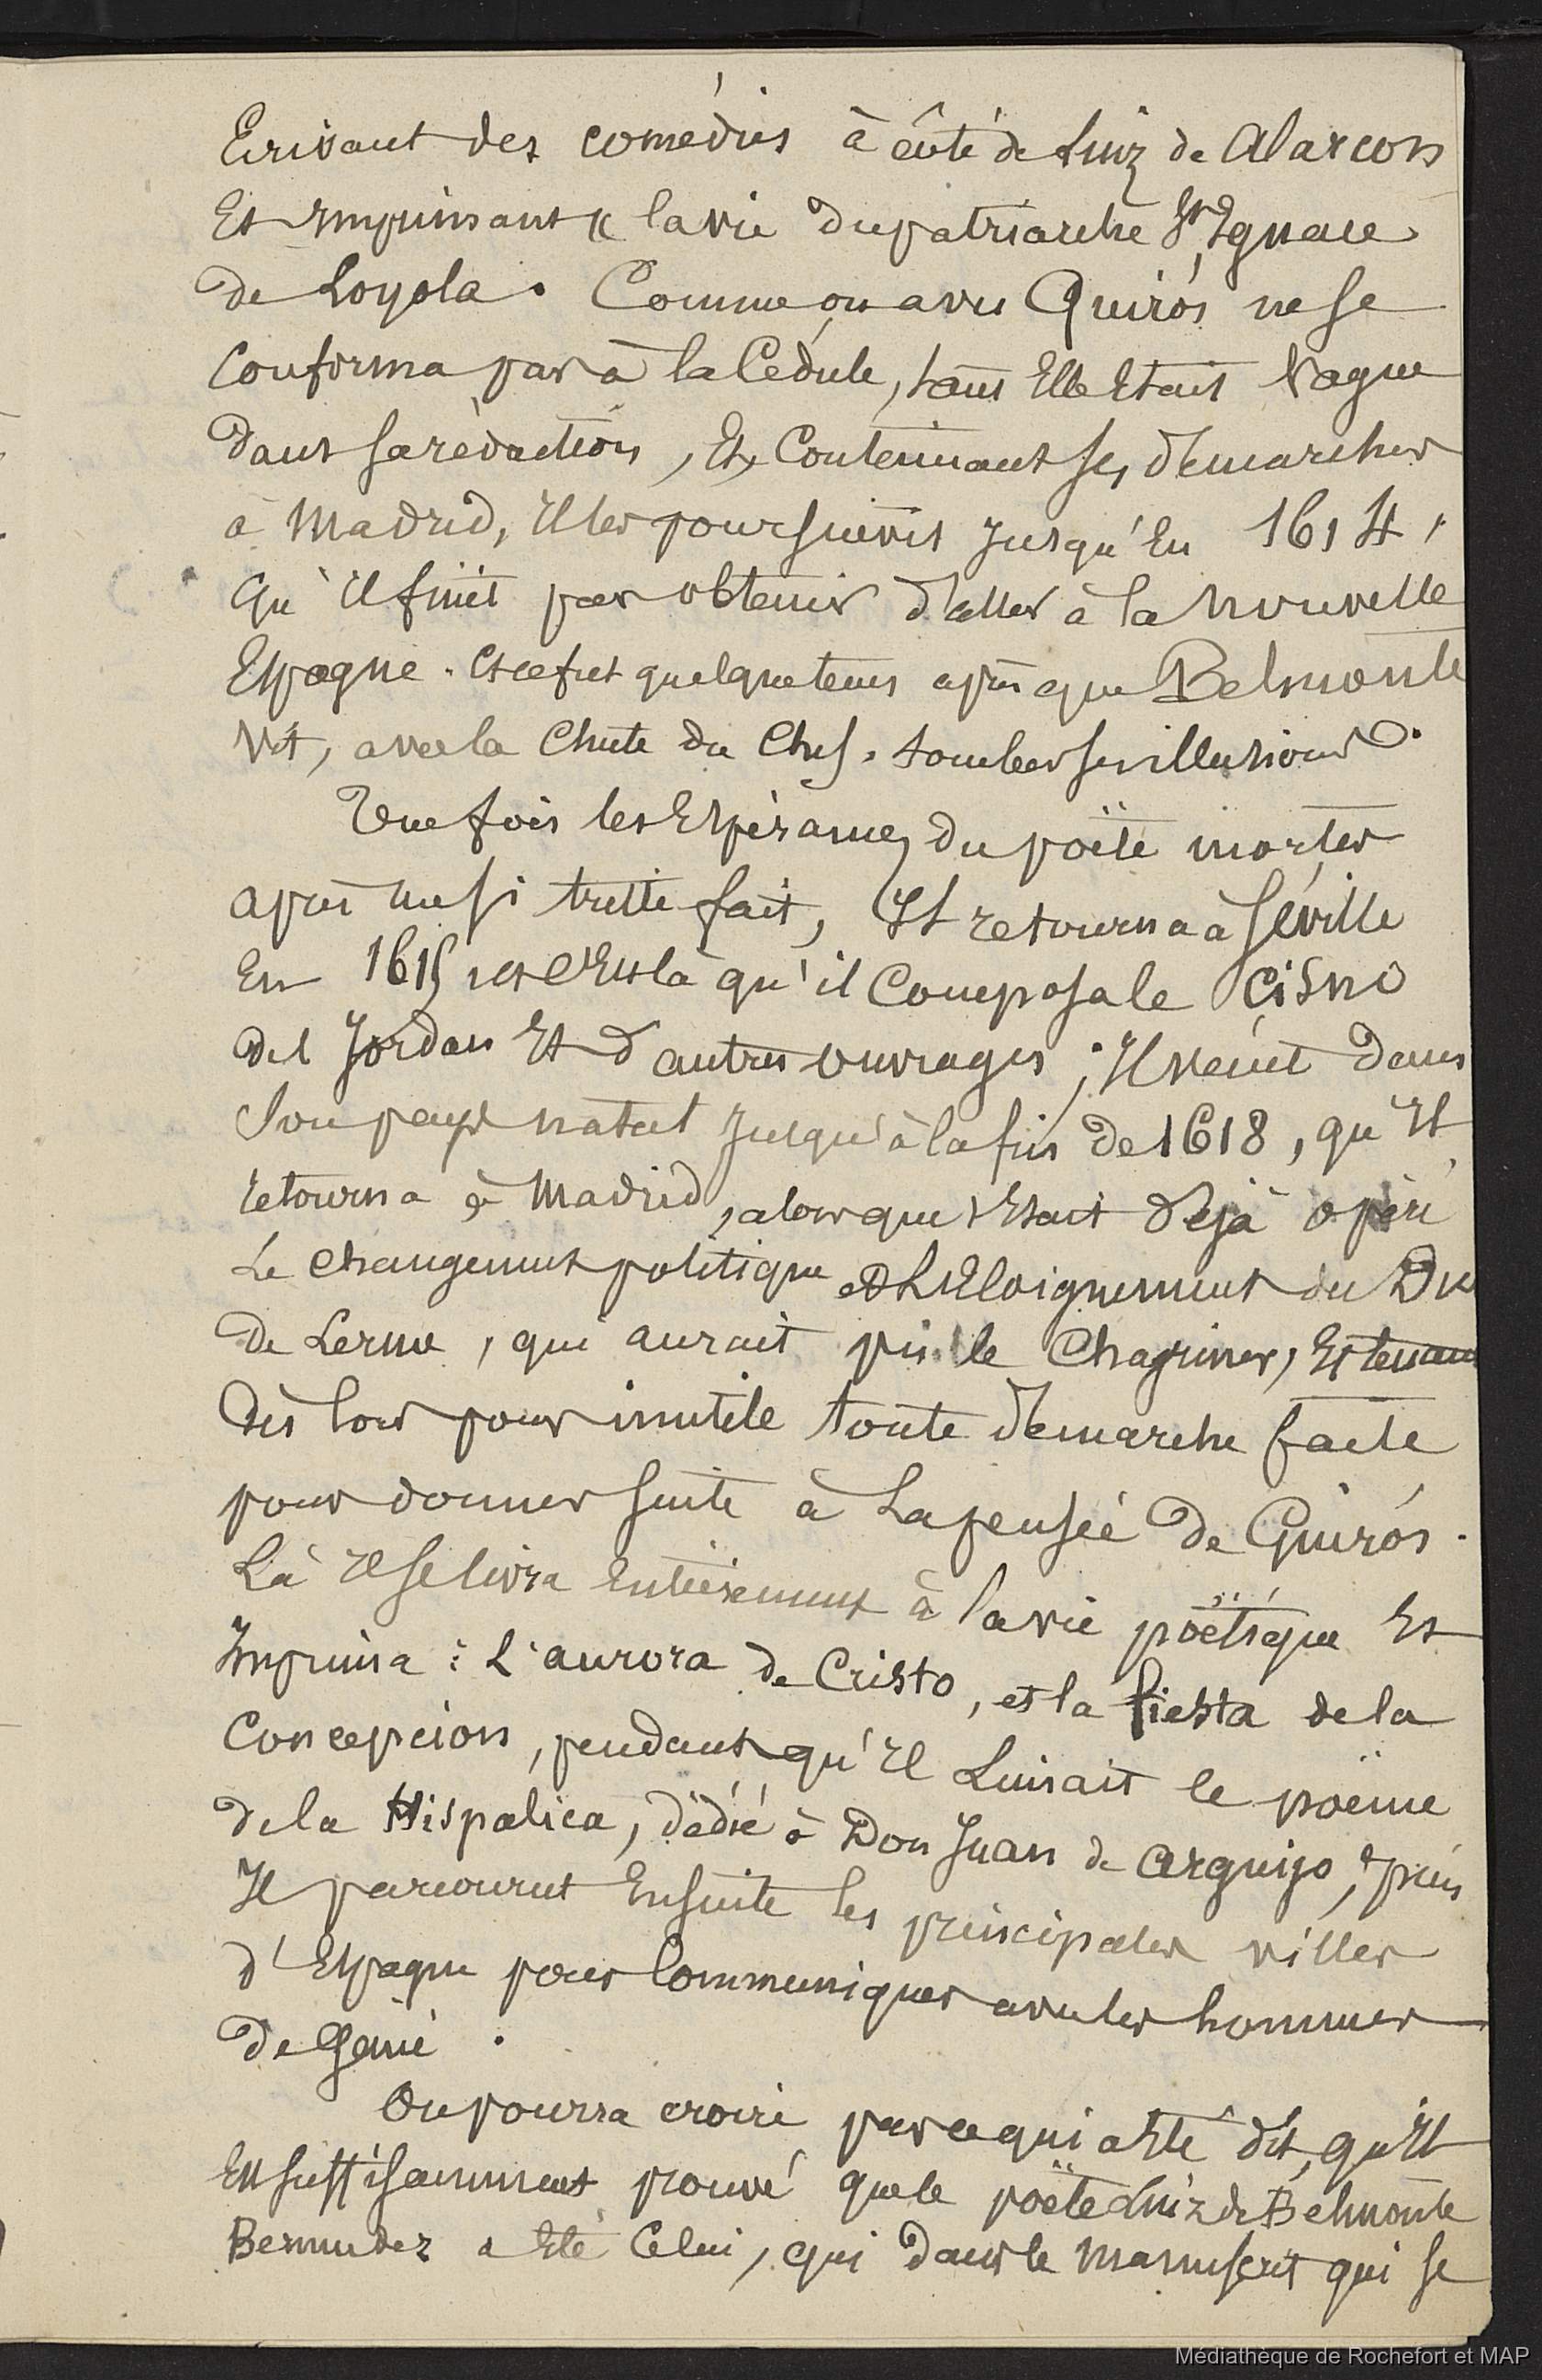 Ecrivant des comédies à côté de Luiz de Alarcon
Et Imprimant « la vie du patriarche St Ignace
de Loyola. Comme on a vu Quirós ne se
Conforma pas à la Cédule, tant Elle Etait Vague
dans sa rédaction, Et, Continuant ses démarches
à Madrid, Il les poursuivit jusqu'En 1614,
Qu'il finit par obtenir d'aller à la nouvelle
Espagne. Et ce fut quelque tems après que Belmonte
Vit, avec la Chute du Chef, tomber ses illusions.
Une fois les Espérances du poëte mortes
après un si triste fait, Il retourna à Séville
En 1615, et c'Est là qu'il Composa le Cisne
del Jordan Et d'autres ouvrages ; Il vécut dans
Son pays natal jusqu'à la fin de 1618, qu'Il
retourna à Madrid, alors que s'Etait déjà opéré
Le Changement politique et L'Eloignement du Duc
de Lerme, qui aurait pu le Chagriner, Et tenant
dès lors pour inutile toute démarche faite
pour donner suite à La pensée de Quirós.
Là Il se livra Entièrement à la vie poëtique Et
Imprima : L'aurora de Cristo, et la fiesta de la
Concepcion, pendant qu'Il Limait le poëme
de la Hispalica, dédié à Don Juan de Arguijo, puis
Il parcourut Ensuite les principales villes
d'Espagne pour Communiquer avec les hommes
de Génie.
On pourra croire par ce qui a Eté dit, qu'Il
Est suffisamment prouvé que le poëte Luiz de Belmonte
Bermudez a Eté Celui, qui dans le manuscrit qui se
Médiathèque de Rochefort et MAP